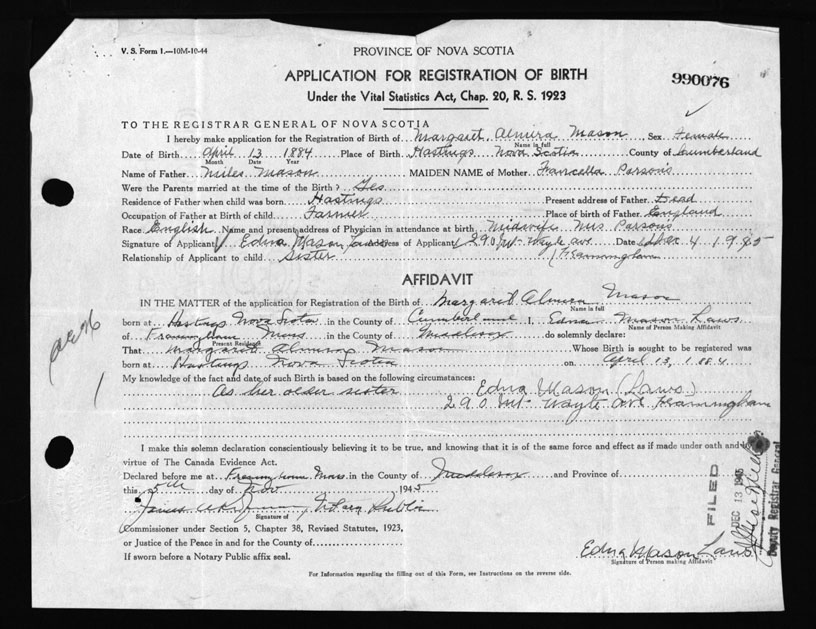 V. S. Form 1.—10M-10-44
PROVINCE OF NOVA SCOTIA
APPLICATION FOR REGISTRATION OF BIRTH
990076
Under the Vital Statistics Act, Chap. 20, R. S. 1923
TO THE REGISTRAR GENERAL OF NOVA SCOTIA
I hereby make application for the Registration of Birth of Margaret Almira Mason Sex Female
Name in full
Date of Birth April 13 1884 Place of Birth Hastings Nova Scotia County of Cumberland
Month Date Year
Name of Father Miles Mason MAIDEN NAME of Mother Francella Parsons
Were the Parents married at the time of the Birth? Yes
Residence of Father when child was born Hastings Present address of Father Dead
Occupation of Father at Birth of child Farmer Place of birth of Father England
Race English Name and present address of Physician in attendance at birth Midwife Mrs Parsons
Signature of Applicant Edna Mason Laws Address of Applicant 290 Mt. Wayte ave Date 4 1945
Relationship of Applicant to child Sister Framingham
AFFIDAVIT
IN THE MATTER of the application for Registration of the Birth of Margaret Almira Mason
Name in full
born at Hastings Nova Scotia in the County of Cumberland I, Edna Mason Laws
Name of Person Making Affidavit
of Framingham Mass in the County of Middlesex do solemnly declare:
Present Residence
That Margaret Almira Mason Whose Birth is sought to be registered was
born at Hastings Nova Scotia on April 13, 1884
My knowledge of the fact and date of such Birth is based on the following circumstances: Edna Mason (Laws)
As her older sister 290 Mt. Wayte Ave Framingham
I make this solemn declaration conscientiously believing it to be true, and knowing that it is of the same force and effect as if made under oath and by
virtue of The Canada Evidence Act.
Declared before me at Framingham Mass in the County of Middlesex and Province of
this 5th day of Nov 1945
Signature of Notary Public
Commissioner under Section 5, Chapter 38, Revised Statutes, 1923,
or Justice of the Peace in and for the County of
If sworn before a Notary Public affix seal.
Edna Mason Laws
Signature of Person making Affidavit
For Information regarding the filling out of this Form, see Instructions on the reverse side.
FILED
DEC 13 1945
Deputy Registrar General